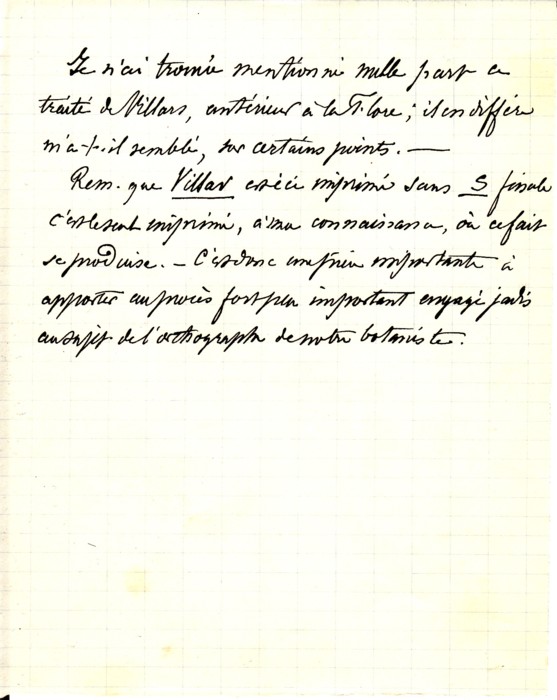 Je n'ai trouvé mentionné nulle part ce
traité de Villars, antérieur à la Flore ; il en diffère
m'a-t-il semblé, sur certains points. —
Rem. que Villar est ici imprimé sans S finale
c'est le seul imprimé, à ma connaissance, où ce fait
se produise. — C'est donc une pièce importante à
apporter au procès fort peu important engagé jadis
au sujet de l'orthographe de notre botaniste.